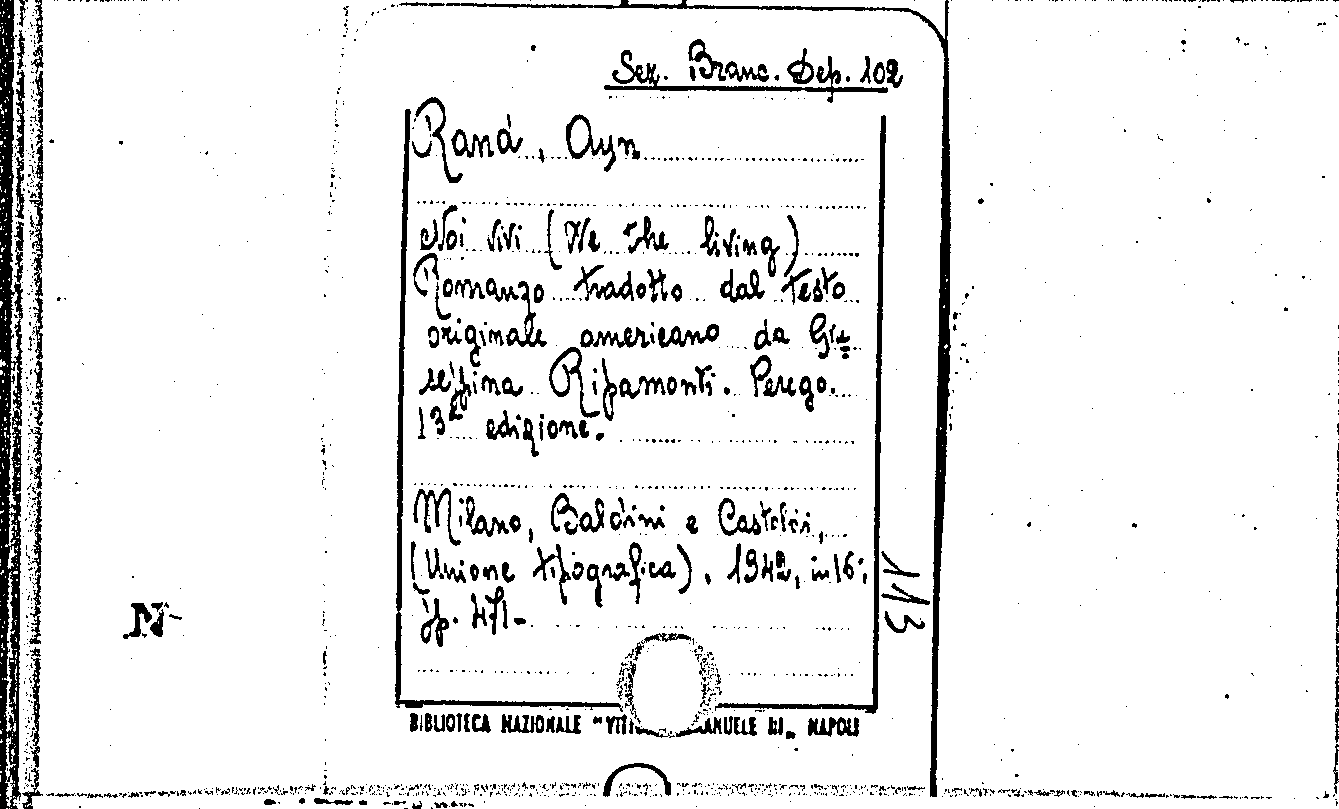 Sez. Branc. Dep. 102
Rand, Ayn
Noi vivi (We the living)
Romanzo tradotto dal testo
originale americano da Giu=
seppina Ripamonti. Perego.
13ª edizione.
Milano, Baldini e Castoldi,
(Unione tipografica), 1942, in 16;
pp. 471-
113
N-
BIBLIOTECA NAZIONALE "VITT ANUELE III„ NAPOLI